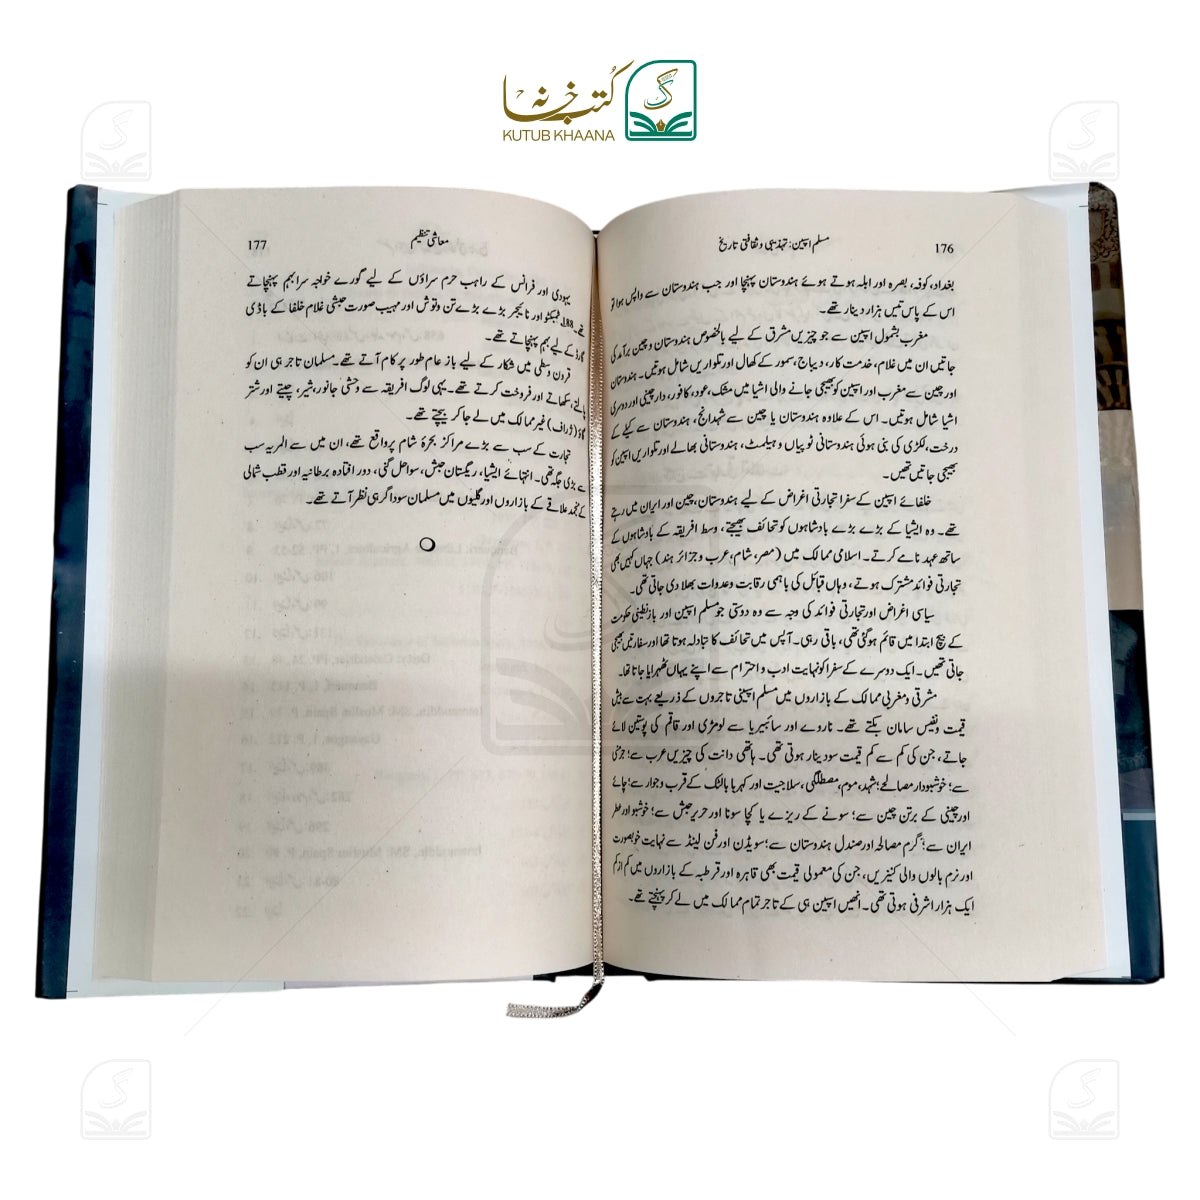 کتب خانہ
KUTUB KHAANA
176
مسلم اسپین: تہذیبی و ثقافتی تاریخ
بغداد، کوفہ، بصرہ اور ابلہ ہوتے ہوئے ہندوستان پہنچا اور جب ہندوستان سے واپس ہوا تو
اس کے پاس تیس ہزار دینار تھے۔
مغرب بشمول اسپین سے جو چیزیں مشرق کے لیے بالخصوص ہندوستان و چین برآمد کی
جاتیں ان میں غلام، خدمت گار، دیباج، سمور کے کھال اور تلواریں شامل ہوتیں۔ ہندوستان
اور چین سے مغرب اور اسپین کو بھیجی جانے والی اشیا میں مشک، عود، کافور، دارچینی اور دوسری
اشیا شامل ہوتیں۔ اس کے علاوہ ہندوستان یا چین سے شہدانج، ہندوستان سے کیلے کے
درخت، لکڑی کی بنی ہوئی ہندوستانی ٹوپیاں و ہیلمٹ، ہندوستانی بھالے اور تلواریں اسپین کو
بھیجی جاتیں تھیں۔
خلفائے اسپین کے سفرا تجارتی اغراض کے لیے ہندوستان، چین اور ایران میں رہتے
تھے۔ وہ ایشیا کے بڑے بڑے بادشاہوں کو تحائف بھیجتے، وسط افریقہ کے بادشاہوں کے
ساتھ عہد نامے کرتے۔ اسلامی ممالک میں (مصر، شام، عرب و جزائر ہند) جہاں کہیں بھی
تجارتی فوائد مشترک ہوتے، وہاں قبائل کی باہمی رقابت و عداوت بھلا دی جاتی تھی۔
سیاسی اغراض اور تجارتی فوائد کی وجہ سے وہ دوستی جو مسلم اسپین اور بازنطینی حکومت
کے بیچ ابتدا میں قائم ہوگئی تھی، باقی رہی۔ آپس میں تحائف کا تبادلہ ہوتا تھا اور سفارتیں بھیجی
جاتی تھیں۔ ایک دوسرے کے سفرا کو نہایت ادب و احترام سے اپنے یہاں ٹھہرایا جاتا تھا۔
مشرقی و مغربی ممالک کے بازاروں میں مسلم اسپینی تاجروں کے ذریعے بہت سے بیش
قیمت و نفیس سامان بکتے تھے۔ ناروے اور سائبیریا سے لومڑی اور قاقم کی پوستین لائے
جاتے، جن کی کم سے کم قیمت سو دینار ہوتی تھی۔ ہاتھی دانت کی چیزیں عرب سے؛ جرمنی
سے؛ خوشبودار مصالحے؛ شہد، موم، مصطلگی، سلاجیت اور کہربا بالٹک کے قرب و جوار سے؛ چائے
اور چینی کے برتن چین سے؛ سونے کے ریزے یا کچا سونا اور حریر حبش سے؛ خوشبو اور عطر
ایران سے؛ گرم مصالحہ اور صندل ہندوستان سے؛ سویڈن اور فن لینڈ سے نہایت خوبصورت
اور نرم بالوں والی کنیزیں، جن کی معمولی قیمت بھی قاہرہ اور قرطبہ کے بازاروں میں کم از کم
ایک ہزار اشرفی ہوتی تھی۔ انھیں اسپین ہی کے تاجر تمام ممالک میں لے کر پہنچتے تھے۔
معاشی تنظیم
177
یہودی اور فرانس کے راہب حرم سراؤں کے لیے گورے خواجہ سرا بہم پہنچاتے
تھے۔188 ٹمبکٹو اور نائیجر بڑے بڑے تن و توش اور مہیب صورت حبشی غلام خلفا کے باڈی
گارڈ کے لیے بہم پہنچاتے تھے۔
قرون وسطی میں شکار کے لیے باز عام طور پر کام آتے تھے۔ مسلمان تاجر ہی ان کو
پالتے، سکھاتے اور فروخت کرتے تھے۔ یہی لوگ افریقہ سے وحشی جانور، شیر، چیتے اور شتر
گاؤ (زراف) غیر ممالک میں لے جا کر بیچتے تھے۔
تجارت کے سب سے بڑے مراکز بحرۂ شام پر واقع تھے، ان میں سے المریہ سب
سے بڑی جگہ تھی۔ انتہائے ایشیا، ریگستان حبش، سواحل گنی، دور افتادہ برطانیہ اور قطب شمالی
کے منجمد علاقے کے بازاروں اور گلیوں میں مسلمان سوداگر ہی نظر آتے تھے۔